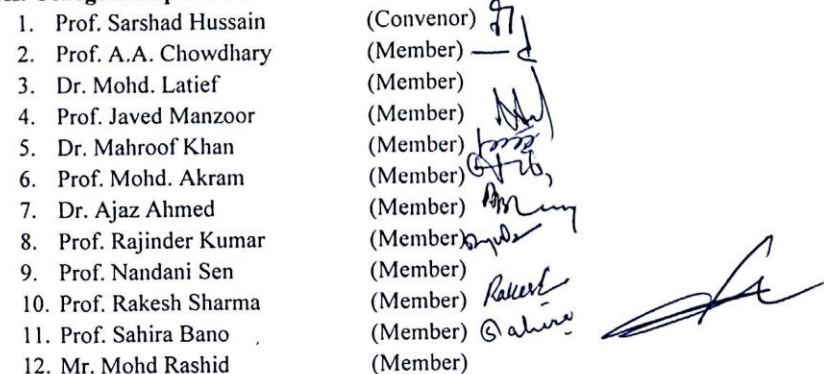 1. Prof. Sarshad Hussain (Convenor)
2. Prof. A.A. Chowdhary (Member)
3. Dr. Mohd. Latief (Member)
4. Prof. Javed Manzoor (Member)
5. Dr. Mahroof Khan (Member)
6. Prof. Mohd. Akram (Member)
7. Dr. Ajaz Ahmed (Member)
8. Prof. Rajinder Kumar (Member)
9. Prof. Nandani Sen (Member)
10. Prof. Rakesh Sharma (Member) Rakesh
11. Prof. Sahira Bano (Member) Sahira
12. Mr. Mohd Rashid (Member)